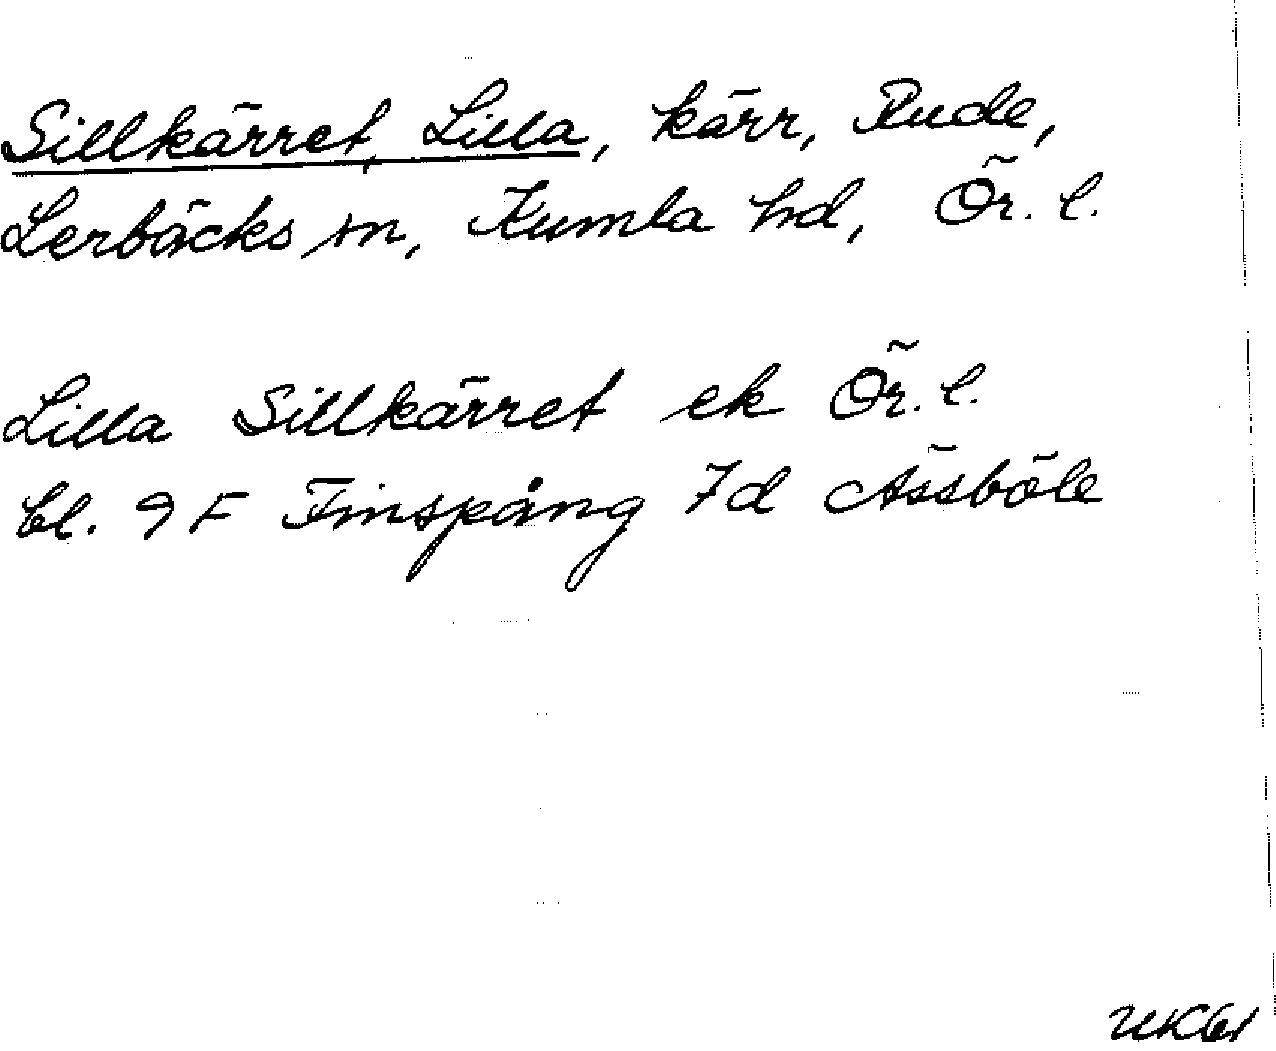 Sillkärret, Lilla, kärr, Rude,
Lerbäcks sn, Kumla hd, Ör. l.
Lilla Sillkärret ek Ör. l.
bl. 9 F Finspång 7d Assböle